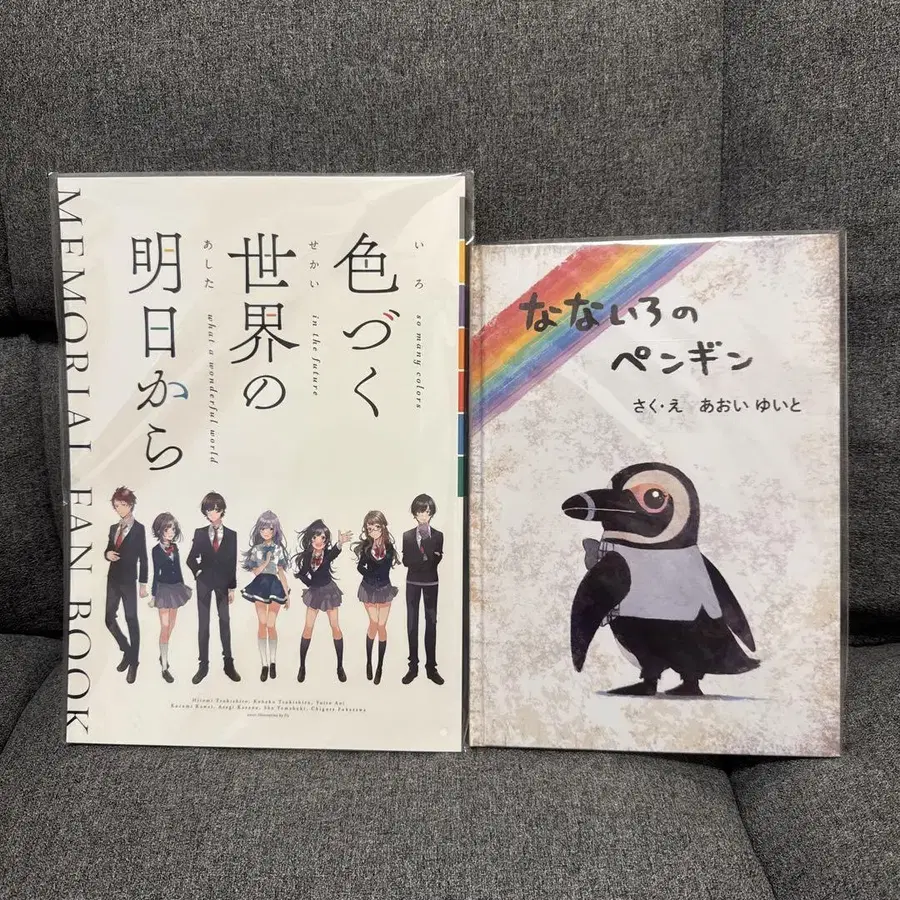 MEMORIAL FAN BOOK
色づく
いろ
so many colors
世界の
せかい
in the future
明日から
あした
what a wonderful world
Hitomi Tsukishiro, Kohaku Tsukishiro, Yuito Aoi
Kurumi Kawai, Asagi Kazano, Sho Yamabuki, Chigusa Fukasawa
なないろの
ペンギン
さく・え あおい ゆいと